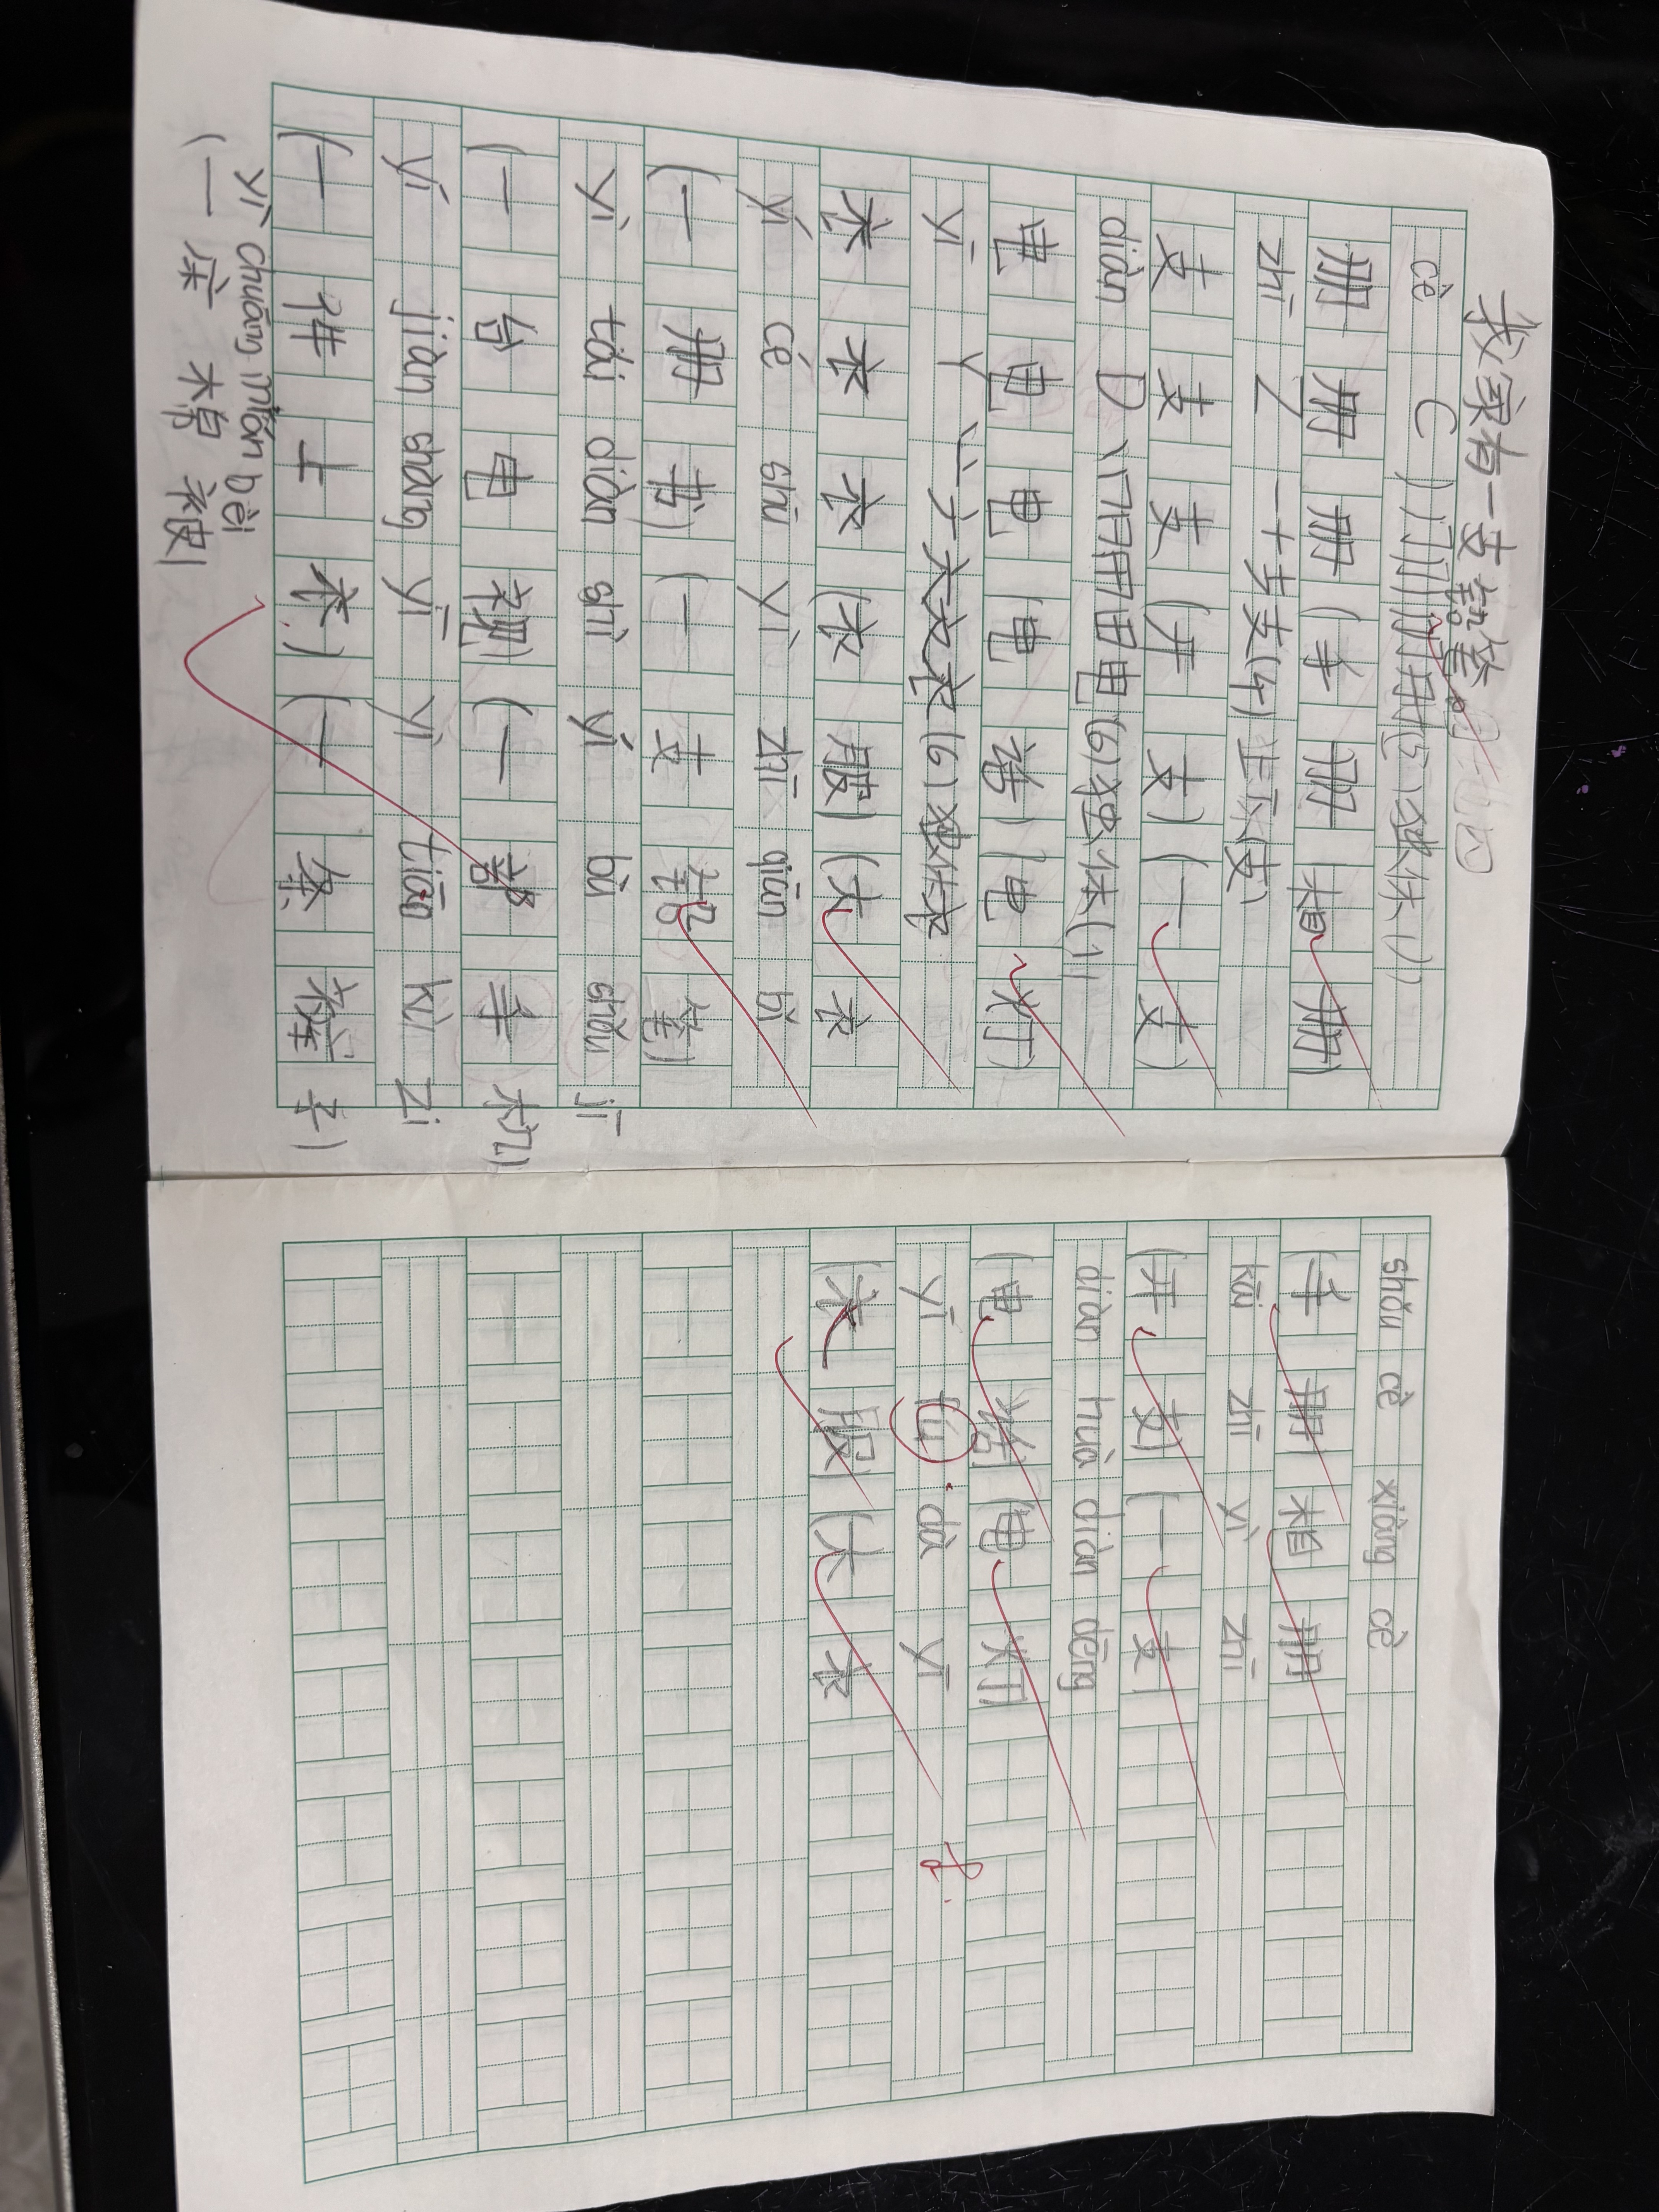 我家有一支铅笔。
cè C
(5) 独体 (1)
册 册 册 (手 册 相 册)
zhī Z 一十支支(4) 上下(支)
支 支 支 (开 支) (一 支)
diàn D 丨冂日日电(6) 独体(1)
电 电 电 (电 话) (电 灯)
yī Y 丶一ナ衣衣衣(6) 独体衣
衣 衣 衣 (衣 服) (大 衣
yí cè shū yì zhī qiān bǐ
(一 册 书) (一 支 铅 笔)
yì tái diàn shì yí bù shǒu jī
(一 台 电 视) (一 部 手 机)
yí jiàn shàng yī yì tiáo kù zi
(一 件 上 衣) (一 条 裤 子)
yì chuáng mián bèi
(一 床 棉 被)
shǒu cè xiàng cè
(手 册 相 册
kāi zhī yì zhī
(开 支) (一 支)
diàn huà diàn dēng
(电 话) (电 灯)
yī fú dà yī
(衣 服) (大 衣